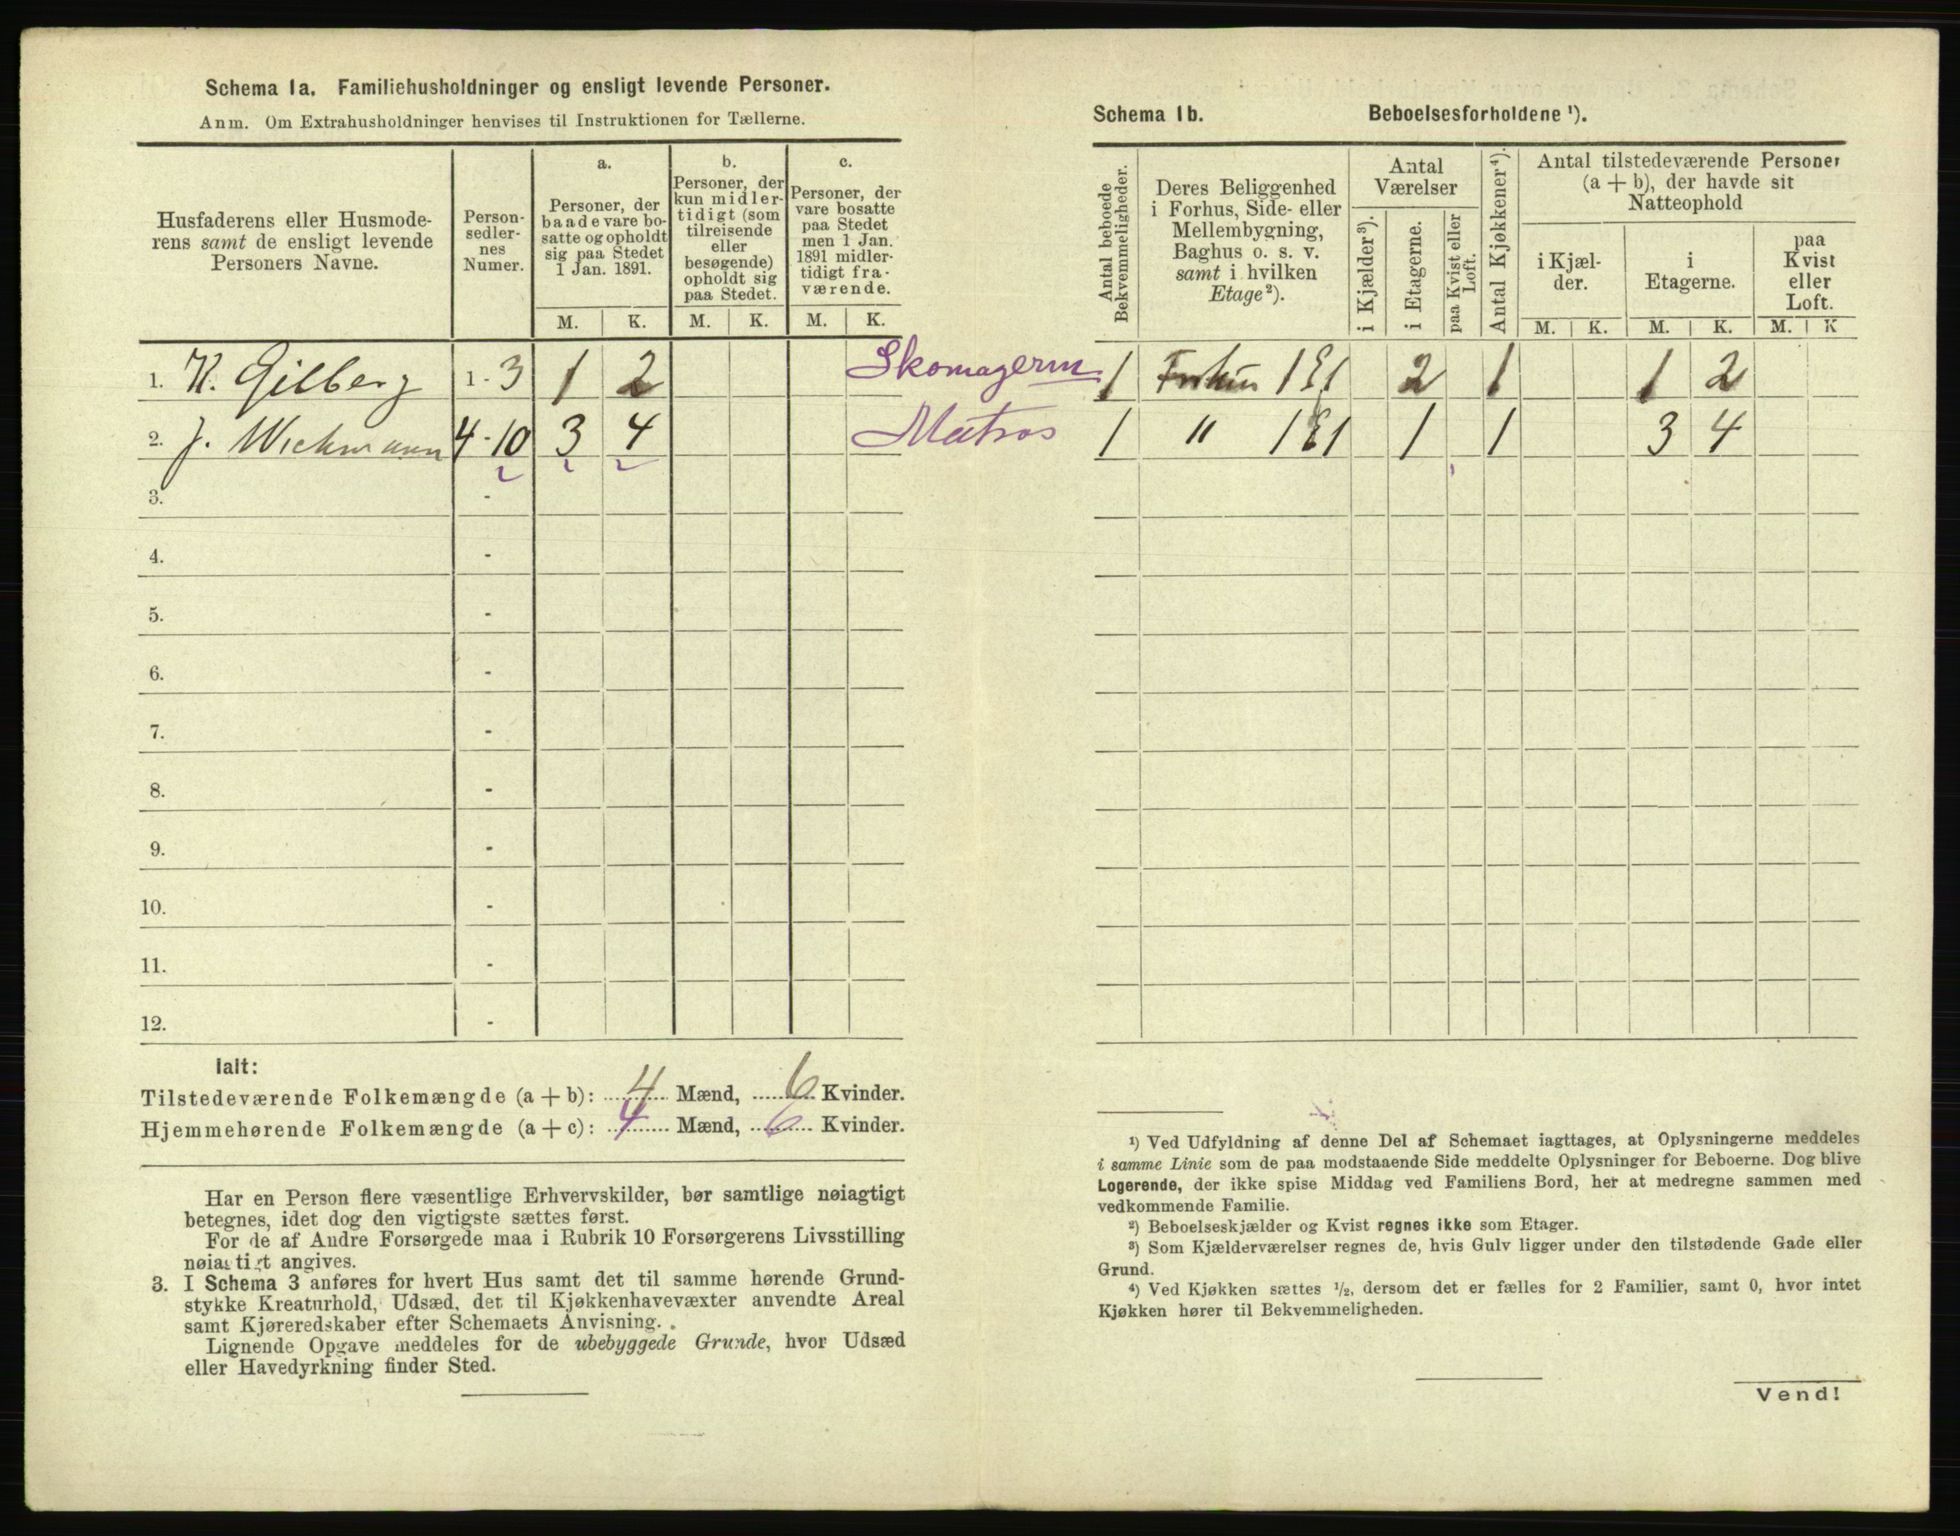 Schema 1a. Familiehusholdninger og ensligt levende Personer.
Anm. Om Extrahusholdninger henvises til Instruktionen for Tællerne.
Husfaderens eller Husmode-
rens samt de ensligt levende
Personers Navne.
Person-
sedler-
nes
Numer.
a.
Personer, der
baade vare bo-
satte og opholdt
sig paa Stedet
1 Jan. 1891.
b.
Personer, der
kun midler-
tidigt (som
tilreisende
eller
besøgende)
opholdt sig
paa Stedet.
c.
Personer, der
vare bosatte
paa Stedet
men 1 Jan.
1891 midler-
tidigt fra-
værende.
M. K. M. K. M. K.
1. K. Gilberg 1 - 3 1 2 Skomagerm
2. J. Wickmann 4 - 10 3 4 Matros
3. -
4. -
5. -
6. -
7. -
8. -
9. -
10. -
11. -
12. -
Ialt:
Tilstedeværende Folkemængde (a + b): 4 Mænd, 6 Kvinder.
Hjemmehørende Folkemængde (a + c): 4 Mænd, 6 Kvinder.
Har en Person flere væsentlige Erhvervskilder, bør samtlige nøiagtigt
betegnes, idet dog den vigtigste sættes først.
For de af Andre Forsørgede maa i Rubrik 10 Forsørgerens Livsstilling
nøiagtigt angives.
3. I Schema 3 anføres for hvert Hus samt det til samme hørende Grund-
stykke Kreaturhold, Udsæd, det til Kjøkkenhavevæxter anvendte Areal
samt Kjøreredskaber efter Schemaets Anvisning.
Lignende Opgave meddeles for de ubebyggede Grunde, hvor Udsæd
eller Havedyrkning finder Sted.
Schema 1b. Beboelsesforholdene ¹).
Antal beboede
Bekvemmeligheder.
Deres Beliggenhed
i Forhus, Side- eller
Mellembygning,
Baghus o. s. v.
samt i hvilken
Etage ²).
Antal
Værelser
i Kjælder ³).
i Etagerne.
paa Kvist eller
Loft.
Antal Kjøkkener ⁴).
Antal tilstedeværende Personer
(a + b), der havde sit
Natteophold
i Kjæl-
der.
i
Etagerne.
paa
Kvist
eller
Loft.
M. K. M. K. M. K
1 Forhus 1 E 1 2 1 1 2
1 " 1 E 1 1 1 3 4
¹) Ved Udfyldning af denne Del af Schemaet iagttages, at Oplysningerne meddeles
i samme Linie som de paa modstaaende Side meddelte Oplysninger for Beboerne. Dog blive
Logerende, der ikke spise Middag ved Familiens Bord, her at medregne sammen med
vedkommende Familie.
²) Beboelseskjælder og Kvist regnes ikke som Etager.
³) Som Kjælderværelser regnes de, hvis Gulv ligger under den tilstødende Gade eller
Grund.
⁴) Ved Kjøkken sættes ½, dersom det er fælles for 2 Familier, samt 0, hvor intet
Kjøkken hører til Bekvemmeligheden.
Vend!